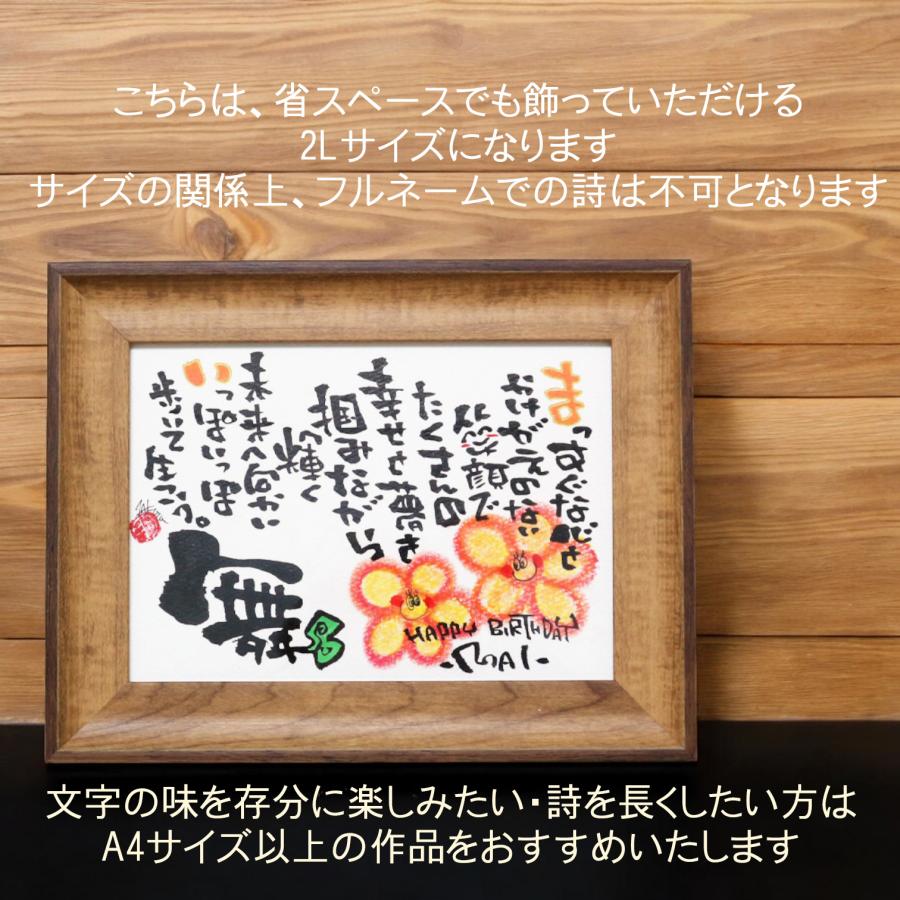 こちらは、省スペースでも飾っていただける
2Lサイズになります
サイズの関係上、フルネームでの詩は不可となります
まっすぐな心と
かけがえのない
笑顔で
たくさんの
幸せと夢を
掴みながら
輝く
未来へ向かい
いっぽいっぽ
歩いて生こう。
舞
HAPPY BIRTHDAY
-MAI-
文字の味を存分に楽しみたい・詩を長くしたい方は
A4サイズ以上の作品をおすすめいたします